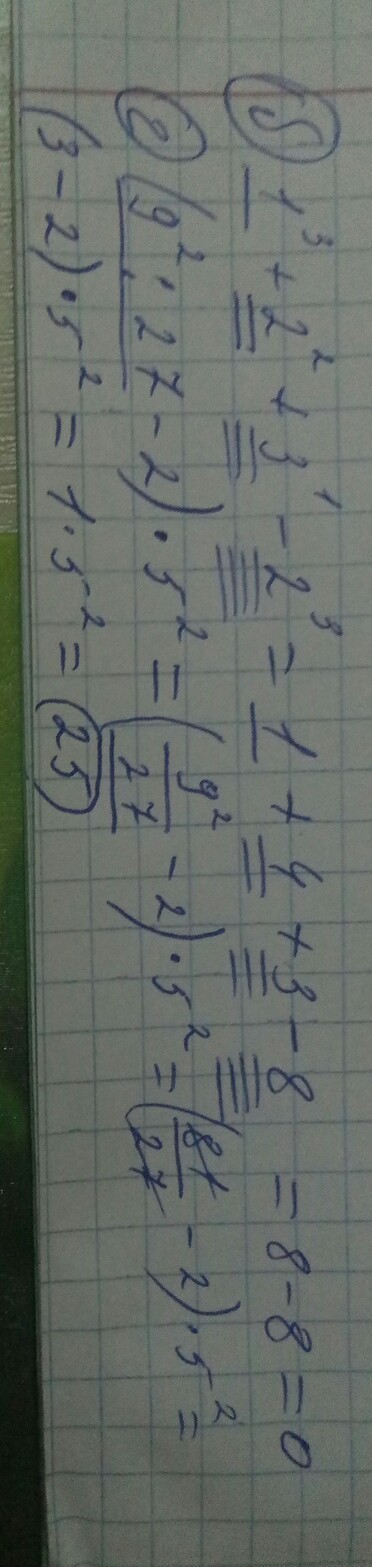 б) 1³ + 2² + 3¹ - 2³ = 1 + 4 + 3 - 8 = 8 - 8 = 0
г) (9² : 27 - 2) · 5² = (9²/27 - 2) · 5² = (81/27 - 2) · 5² =
(3 - 2) · 5² = 1 · 5² = 25